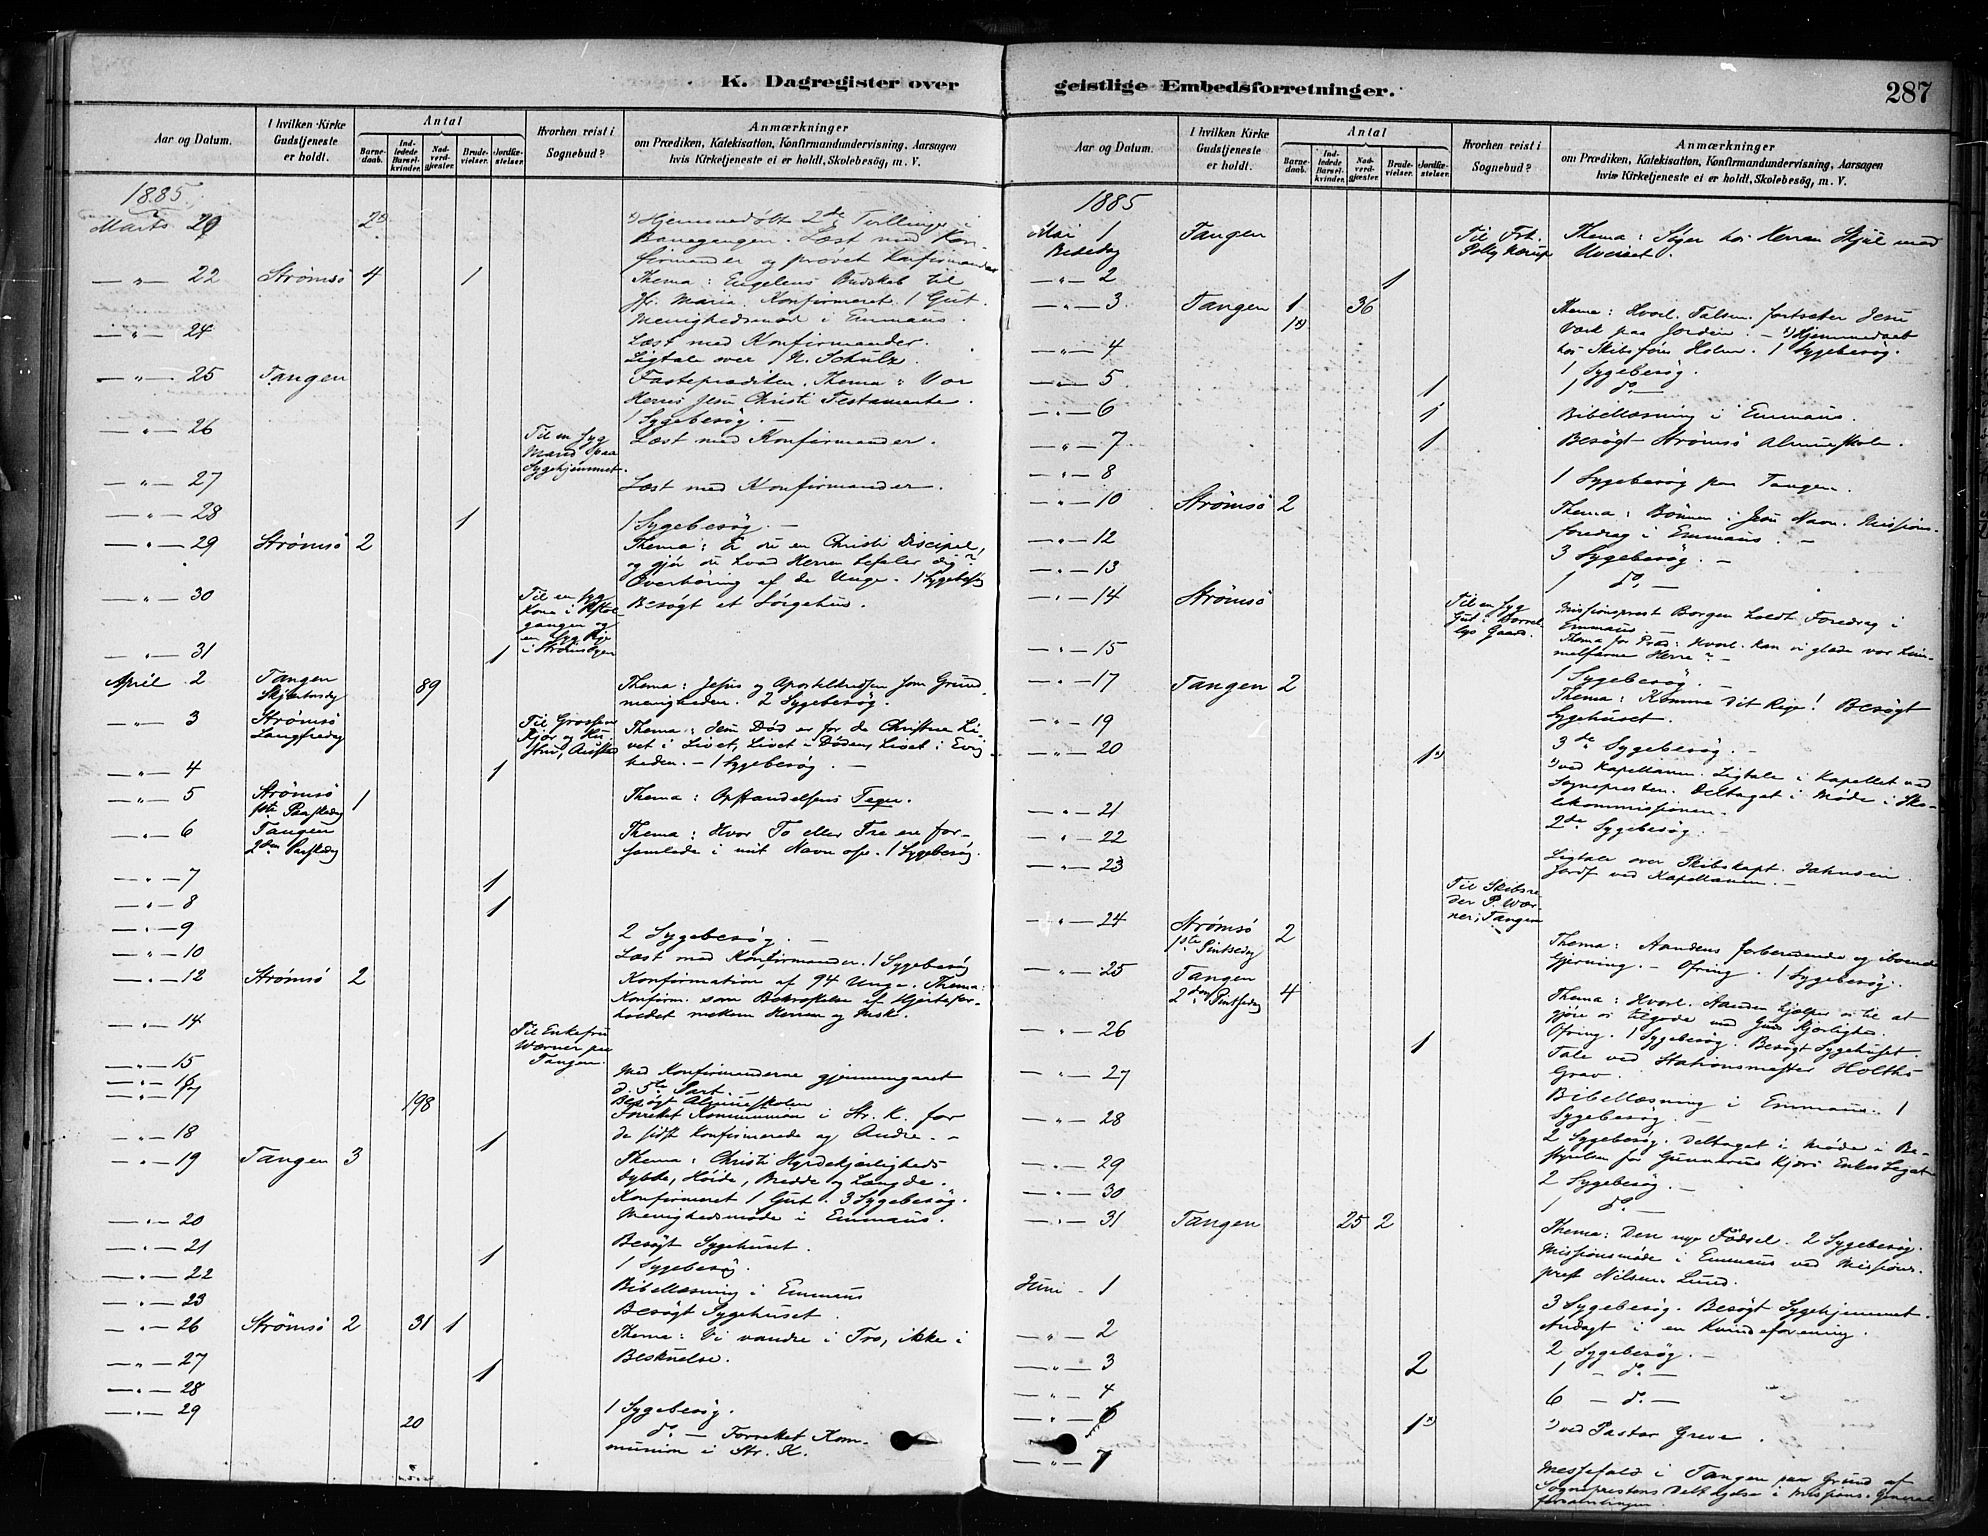 K. Dagregister over
Aar og Datum.
I hvilken Kirke Gudstjeneste er holdt.
Antal
Barnedaab.
Indledede Barselkvinder.
Nadverdgjæster.
Brudevielser.
Jordfæstelser.
Hvorhen reist i Sognebud?
Anmærkninger
om Prædiken, Katekisation, Konfirmandundervisning, Aarsagen
hvis Kirketjeneste ei er holdt, Skolebesøg, m. V.
1885.
Marts 20 2*)
*) Hjemmedøbt 2de Tvillinger i
Læst med Kon-
firmander og prøvet Konfirmander
— " — 22 Strømsö 4 1
Thema: Engelens Budskab til
Jfr. Maria. Konfirmeret 1 Gut.
Menighedsmøde i Emmaus.
— " — 24
Læst med Konfirmander.
Ligtale over N. Schulz
— " — 25 Tangen
Fasteprædiken. Thema: Vor
Herres Jesu Christi Testamente
1 Sygebesøg. —
— " — 26 Til en syg Mand paa Sygehjemmet.
Læst med Konfirmander.
— " — 27
Læst med Konfirmander.
— " — 28 1
1 Sygebesøg. —
— " — 29 Strømsö 2
Thema: Er du en Christi Discipel,
og gjør du hvad Herren befaler dig?
Overhöring af de Unge. 1 Sygebesøg
— " — 30 Til en syg Kone i
Besøgt et Sörgehus.
— " — 31 1
April 2 Tangen Skjertorsdag 89
Thema: Jesus og Apostelkredsen som Grund
menigheden. 2 Sygebesøg.
— " — 3 Strømsö Langfredag
Thema: Jesu Död er for de Christne Li-
vet i Livet, Livet i Döden, Livet i Evig
heden. — 1 Sygebesøg. —
— " — 4 1
— " — 5 Strømsö 1ste Paaskedag 1
Thema: Opstandelsens Tegn.
— " — 6 Tangen 2den Paaskedag
Thema: Hvor To eller Tre ere for-
samlede i mit Navn osv. 1 Sygebesøg.
— " — 7 1
— " — 8 1
— " — 9
2 Sygebesøg. —
— " — 10
Læst med Konfirmander. 1 Sygebesøg
— " — 12 Strømsö 2
Konfirmation af 94 Unge. Thema:
Konfirm. som Bekræftelse af Hjertefor-
holdet mellem Herren og Msk.
— " — 14 Til Enkefru Wærner paa Tangen.
— " — 15
Med Konfirmanderne gjennemgaaet
d. 5te Part. —
— " — 16
Besøgt Almueskolen
— " — 17 198
Forrettet Kommunion i Str. K. for
de sidst Konfirmerede og Andre. —
— " — 18 1
— " — 19 Tangen 3
Thema: Christi Hyrdekjærligheds
Dybde, Höide, Bredde og Længde.
Konfirmeret 1 Gut. 3 Sygebesøg.
Menighedsmøde i Emmaus.
— " — 20
— " — 21 1
Besøgt Sygehuset.
— " — 22
1 Sygebesøg.
— " — 23
Bibellæsning i Emmaus
Besøgt Sygehuset.
— " — 26 Strømsö 2 31 1
Thema: Vi vandre i Tro, ikke i
Beskuelse.
— " — 27 1
— " — 28
1 Sygebesøg.
— " — 29 20
do. — Forrettet Kom-
munion i Str. K.
geistlige Embedsforretninger.
287
Aar og Datum.
I hvilken Kirke Gudstjeneste er holdt.
Antal
Barnedaab.
Indledede Barselkvinder.
Nadverdgjæster.
Brudevielser.
Jordfæstelser.
Hvorhen reist i Sognebud?
Anmærkninger
om Prædiken, Katekisation, Konfirmandundervisning, Aarsagen
hvis Kirketjeneste ei er holdt, Skolebesøg, m. V.
1885
Mai 1 Bededag Tangen Til Frk.
Thema: Søger hos Herren Skjul mod
Uveiret.
— " — 2 1
— " — 3 Tangen 1 36
1*)
Thema: Hvorl. Talsm. fortsetter Jesu
Værk paa Jorden. — *) Hjemmedaab
hos Skibsför. Holm. 1 Sygebesøg.
— " — 4
1 Sygebesøg.
— " — 5 1
1 do. —
— " — 6 1
Bibellæsning i Emmaus.
— " — 7 1
Besøgt Strömsö Almueskole.
— " — 8
1 Sygebesøg paa Tangen.
— " — 10 Strømsö 2
Thema: Bönnen i Jesu Navn. Missions-
foredrag i Emmaus. —
— " — 12
3 Sygebesøg. —
— " — 13
1 do. —
— " — 14 Strømsö Til en syg Gut i
Missionsprest Borgen holdt Foredrag i
Emmaus.
Thema for Præd: Hvorl. kan vi glæde vor him-
melfarne Herre? —
— " — 15
1 Sygebesøg. —
— " — 17 Tangen 2
Thema: Komme Dit Rige! Besøgt
Sygehuset.
— " — 19
3de Sygebesøg. —
— " — 20 1*)
*) ved Kapellanen. Ligtale i Kapellet ved
Sognepresten. Deltaget i Møde i Sko-
lekommissionen. —
— " — 21
2de Sygebesøg.
— " — 22
— " — 23 Til Skibsreder P. Wærner, Tangen
Ligtale over Skibskapt. Jahnsen.
Jordf. ved Kapellanen. —
— " — 24 Strømsö 1ste Pintsedag 2
Thema: Aandens forberedende og iboende
Gjerning. — Ofring. 1 Sygebesøg.
— " — 25 Tangen 2den Pintsedag 4
Thema: Hvorl. Aanden hjælper os til at
gjøre os tilgode med Guds Kjærlighed.
Ofring. 1 Sygebesøg. Besøgt Sygehuset.
— " — 26 1
Tale ved Stationsmester Holths
Grav.
— " — 27
Bibellæsning i Emmaus. 1
Sygebesøg. —
— " — 28
2 Sygebesøg. Deltaget i Møde i Be-
styrelsen for Gunnerius Kjørs Enkes Legat
— " — 29
2 Sygebesøg. —
— " — 30
1 do. —
— " — 31 Tangen 25 2
Thema: Den nye Födsel. 2 Sygebesøg.
Missionsmøde i Emmaus ved Missions-
prest Nilsen-Lund.
Juni 1
3 Sygebesøg. Besøgt Sygehjemmet.
Andagt i en Kvindeforening.
— " — 2
2 Sygebesøg. —
— " — 3 2
1 — do. —
— " — 4
6 — do. —
— " — 6 1*)
*) ved Pastor Greve.
— " — 7
Messefald i Tangen paa Grund af
Sogneprestens Deltagelse i Missions-General
forsamlingen.